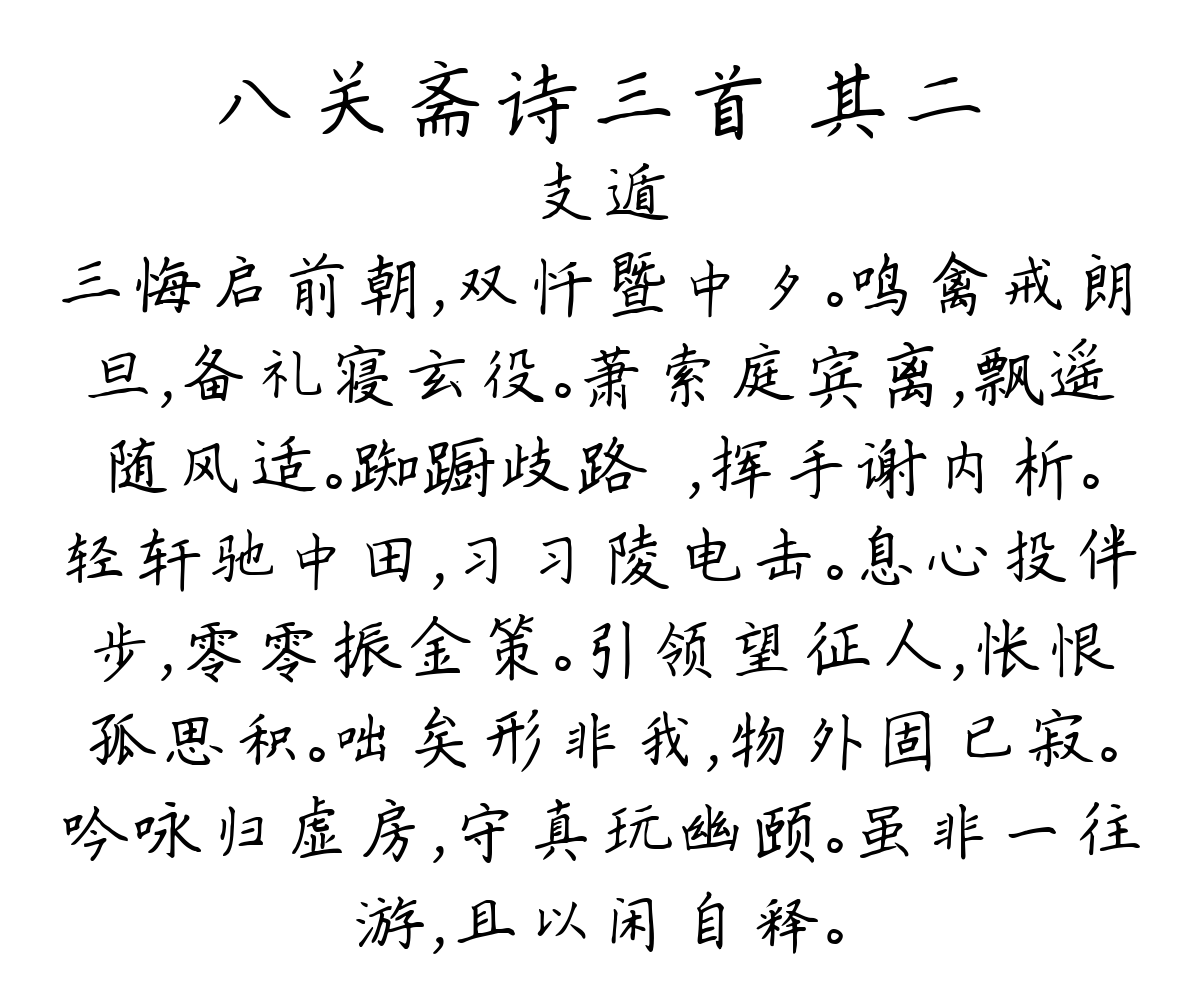 八关斋诗三首 其二
支遁
三悔启前朝,双忏暨中夕。鸣禽戒朗
旦,备礼寝玄役。萧索庭宾离,飘遥
随风适。踟蹰歧路 ,挥手谢内析。
轻轩驰中田,习习陵电击。息心投伴
步,零零振金策。引领望征人,怅恨
孤思积。咄矣形非我,物外固已寂。
吟咏归虚房,守真玩幽颐。虽非一往
游,且以闲自释。